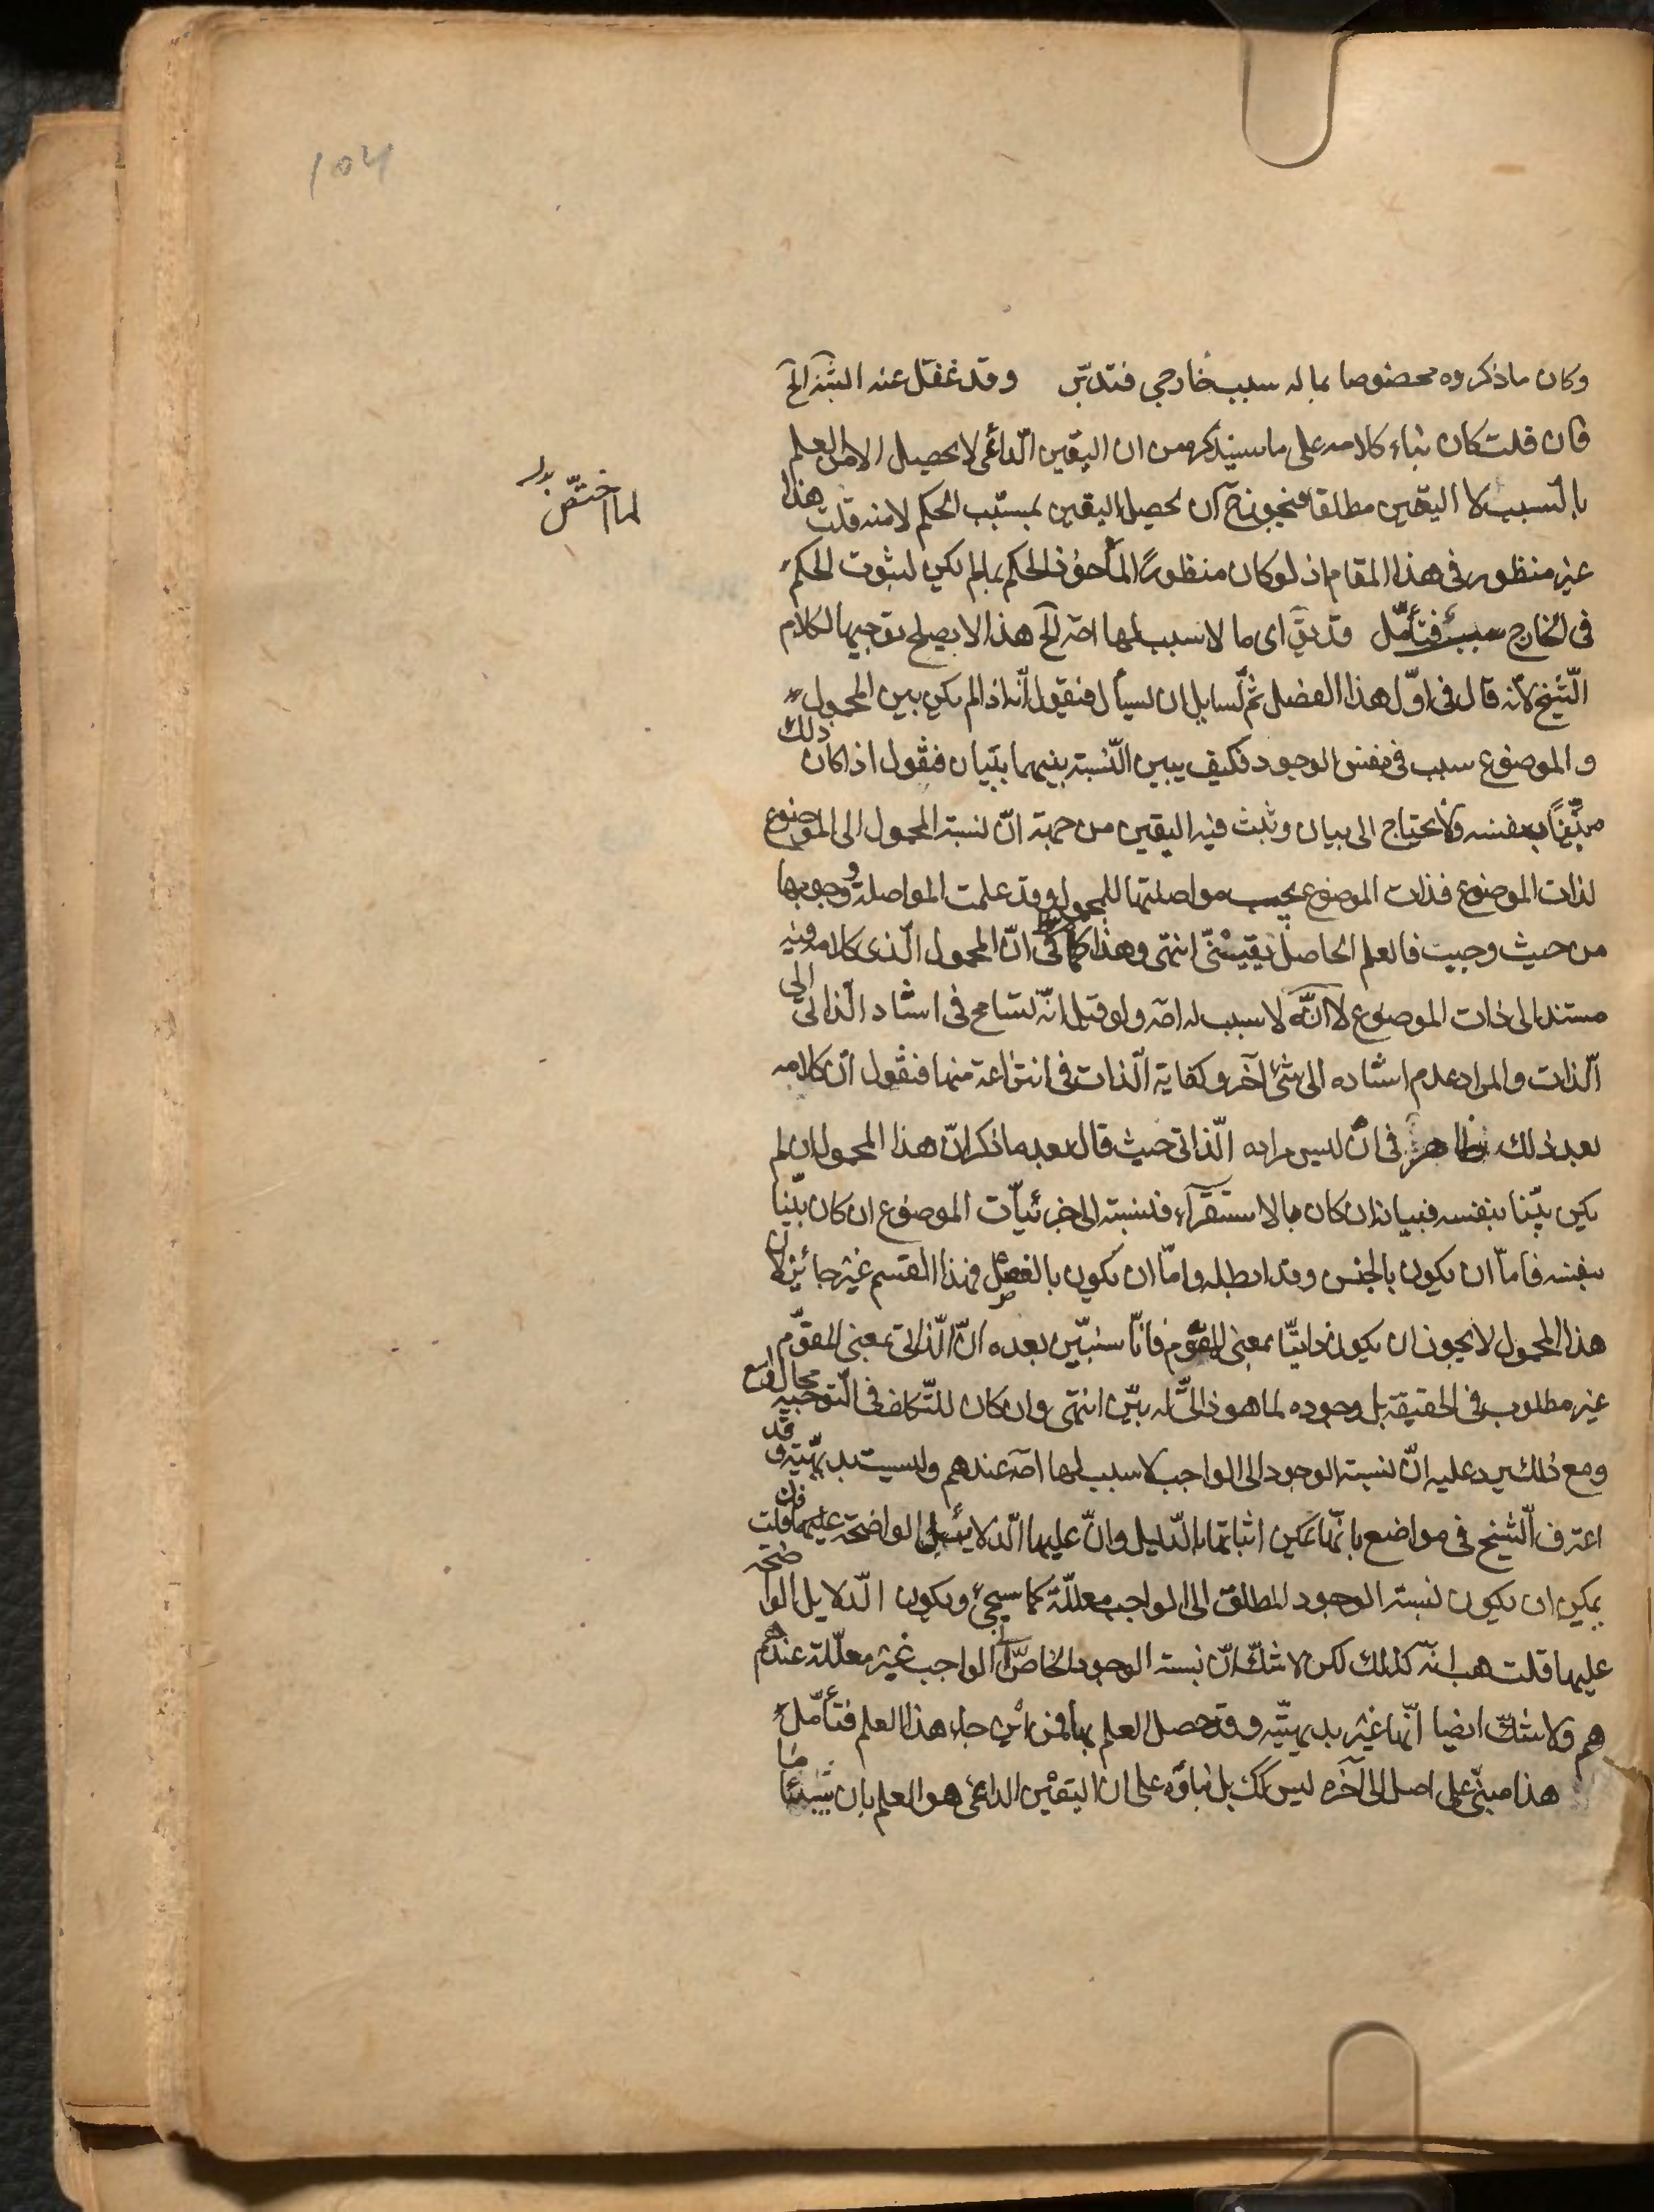 104
وكان ما ذكروه مخصوصا بما له سبب خارجي فتدبّر وقد غفل عنه الخ
فان قلت كان بناء كلامه على ما سيذكره من ان اليقين الدّائمى لا يحصل الا من العلم
بالسّبب لا اليقين مطلقا فيجوز ح ان يحصل اليقين بمسبّب الحكم لا منه قلت هذا
غير منظور فى هذا المقام اذ لو كان منظورا لما حكم بما لم يكن لثبوت الحكم
فى الخارج سبب فتأمّل قد يق اى ما لا سبب لها اصه الخ هذا لا يصلح توجيها لكلام
الشّيخ لانّه قال فى اوّل هذا الفصل ثمّ لسايل ان يسأل فنقول انّه اذا لم يكن بين المحمول
والموضوع سبب فى نفس الوجود فكيف يبين النّسبة بينهما ببيان فنقول اذا كان ذلك
بيّنا بنفسه فلا يحتاج الى بيان وثبت فيه اليقين من جهة انّ نسبة المحمول الى الموضوع
لذات الموضوع فذات الموضوع يجب مواصلتها للمحمول وقد علمت المواصلة ووجوبها
من حيث وجبت فالعلم الحاصل يقينىّ انتهى وهذا كما ترى انّ المحمول الّذى كلامه فيه
مستند الى ذات الموضوع لا انّه لا سبب له اصه ولو قيل انّه تسامح فى اسناد الذاتى الى
الّذات والمراد عدم اسناده الى شئ آخر وكفاية الّذات فى انتزاعه منها فنقول انّ كلامه
بعد ذلك ظاهر فى ان ليس مراده الّذاتى حيث قال بعد ما ذكر انّ هذا المحمول ان لم
يكن بيّنا بنفسه فبيانه ان كان بالاستقرآء فنسبته الى جزئيّات الموضوع ان كان بيّنا
بنفسه فامّا ان يكون بالحس وقد ابطله وامّا ان يكون بالعقل فهذا القسم غير جائز لان
هذا المحمول لا يجوز ان يكون ذاتيّا بمعنى المقوّم فانّا سنبيّن بعده انّ الّذاتى بمعنى المقوّم
غير مطلوب فى الحقيقة بل وجوده لما هو ذاتىّ له بيّن انتهى وان كان للتّكلف فى التّوجيه مجال واسع
ومع ذلك يرد عليه انّ نسبة الوجود الى الواجب لا سبب لها اصه عندهم وليست بديهيّة وقد
اعترف الّشيخ فى مواضع بانّها يمكن اثباتها بالدّليل وانّ عليها الّدلايل الواضحة عليها فان قلت
يمكن ان يكون نسبة الوجود المطلق الى الواجب معلّلة كما سيجئ ويكون الّدلايل الواضحه
عليها قلت هب انّه كذلك لكن لا شكّ انّ نسبة الوجود الخاصّ الى الواجب غير معلّلة عندهم
هم ولا شكّ ايضا انّها غير بديهيّه وقد حصل العلم بها فمن اين جاء هذا العلم فتأمّل
هذا مبنىّ على اصل الى آخره ليس كك بل بناؤه على ان اليقين الدائمى هو العلم بان شيئا ما
لما اختصّ